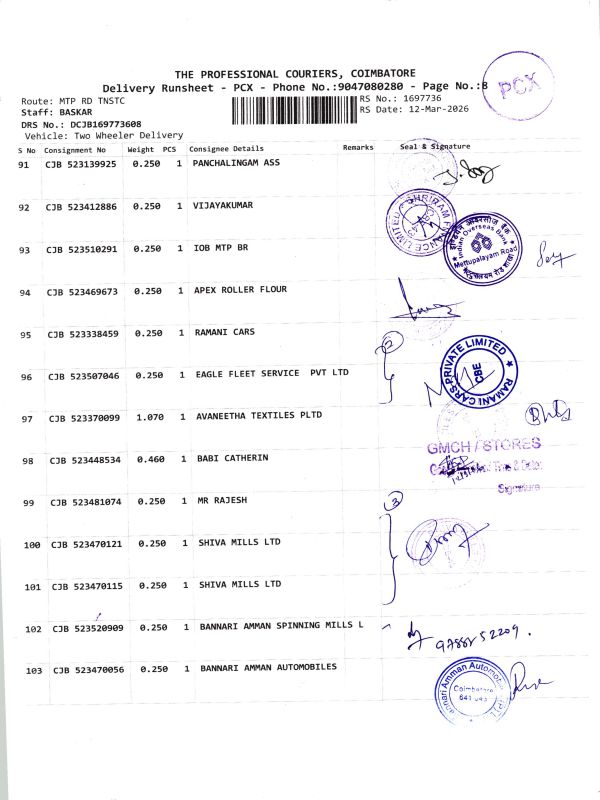 THE PROFESSIONAL COURIERS, COIMBATORE
Delivery Runsheet - PCX - Phone No.:9047080280 - Page No.:8
PCX
Route: MTP RD TNSTC
RS No.: 1697736
Staff: BASKAR
RS Date: 12-Mar-2026
DRS No.: DCJB169773608
Vehicle: Two Wheeler Delivery
S No Consignment No Weight PCS Consignee Details Remarks Seal & Signature
91 CJB 523139925 0.250 1 PANCHALINGAM ASS
92 CJB 523412886 0.250 1 VIJAYAKUMAR
SHRIRAM FINANCE LIMITED
93 CJB 523510291 0.250 1 IOB MTP BR
Indian Overseas Bank
Mettupalayam Road
94 CJB 523469673 0.250 1 APEX ROLLER FLOUR
95 CJB 523338459 0.250 1 RAMANI CARS
2
96 CJB 523507046 0.250 1 EAGLE FLEET SERVICE PVT LTD
RAMANI CARS PRIVATE LIMITED
CBE
97 CJB 523370099 1.070 1 AVANEETHA TEXTILES PLTD
98 CJB 523448534 0.460 1 BABI CATHERIN
GMCH / STORES
Signature
99 CJB 523481074 0.250 1 MR RAJESH
3
100 CJB 523470121 0.250 1 SHIVA MILLS LTD
101 CJB 523470115 0.250 1 SHIVA MILLS LTD
102 CJB 523520909 0.250 1 BANNARI AMMAN SPINNING MILLS L
9788852209.
103 CJB 523470056 0.250 1 BANNARI AMMAN AUTOMOBILES
Coimbatore